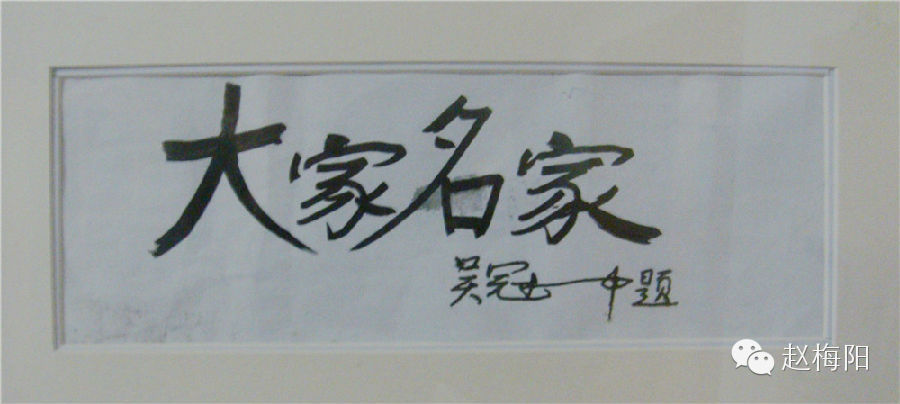 大家名家
吴冠中题
赵梅阳